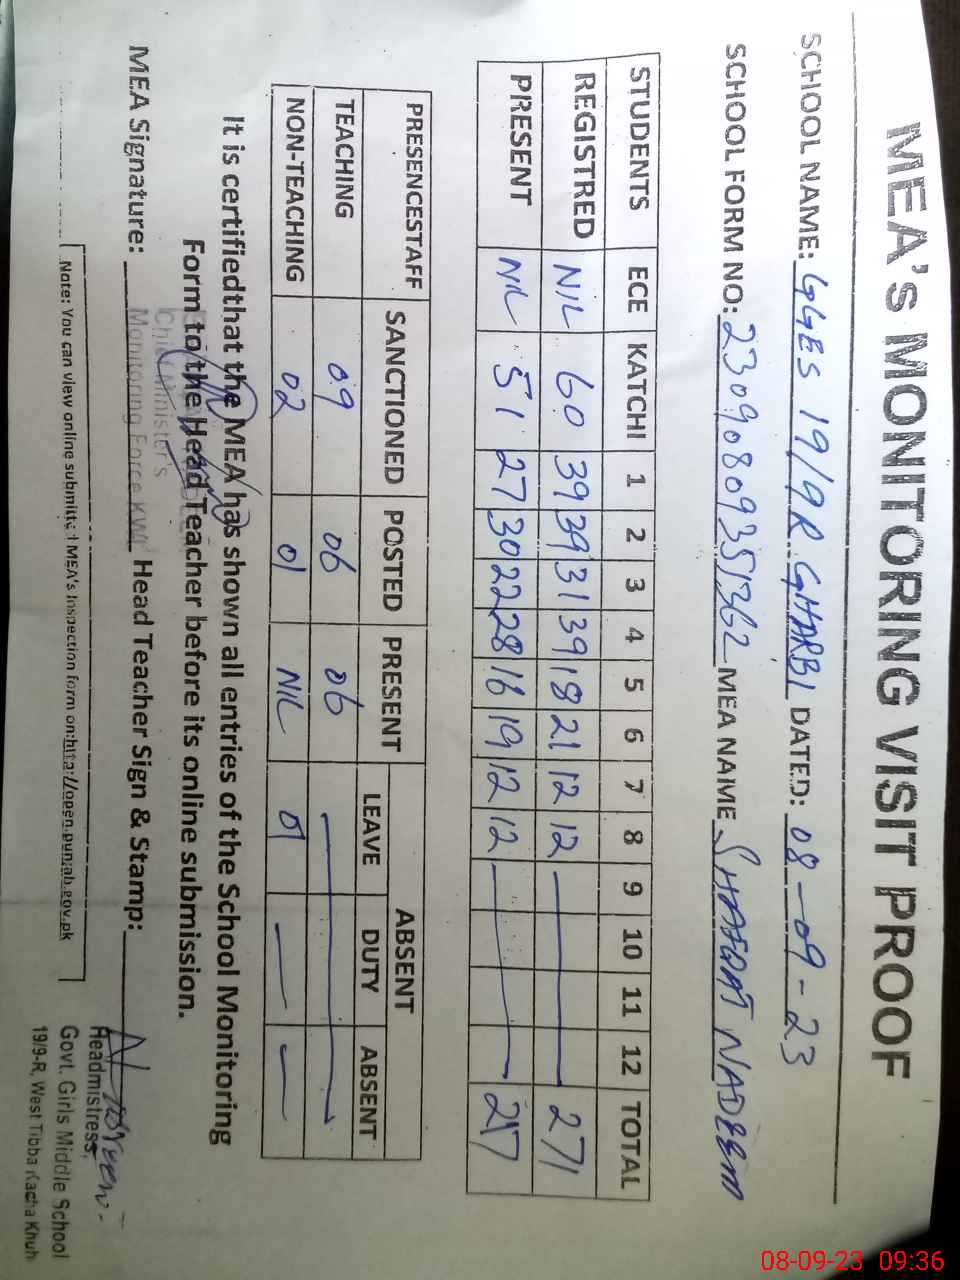 MEA's MONITORING VISIT PROOF
SCHOOL NAME: GGES 19/9R GHARBI DATED: 08-09-23
SCHOOL FORM NO: 23090809351362 MEA NAME SHAFQAT NADEEM
STUDENTS ECE KATCHI 1 2 3 4 5 6 7 8 9 10 11 12 TOTAL
REGISTRED NIL 60 39 39 31 39 18 21 12 12 — 271
PRESENT NIL 51 27 30 22 28 16 19 12 12 — 217
PRESENCESTAFF SANCTIONED POSTED PRESENT ABSENT
LEAVE DUTY ABSENT
TEACHING 09 06 06 —
NON-TEACHING 02 01 NIL 01 — —
It is certifiedthat the MEA has shown all entries of the School Monitoring
Form to the Head Teacher before its online submission.
Chief Minister's
Monitoring Force KWL
MEA Signature: Head Teacher Sign & Stamp:
Headmistress,
Govt. Girls Middle School
19/9-R, West Tibba Kacha Khuh
Note: You can view online submitted MEA's Inspection form on:http://open.punjab.gov.pk
08-09-23 09:36